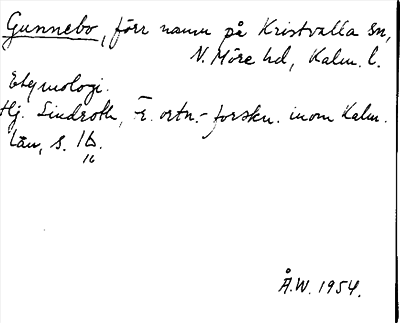 Gunnebo, förr namn på Kristvalla sn,
N. Möre hd, Kalm. l.
Etymologi.
Hj. Lindroth, F. ortn.-forskn. inom Kalm.
län, s. 16.
16
Å.W. 1954.